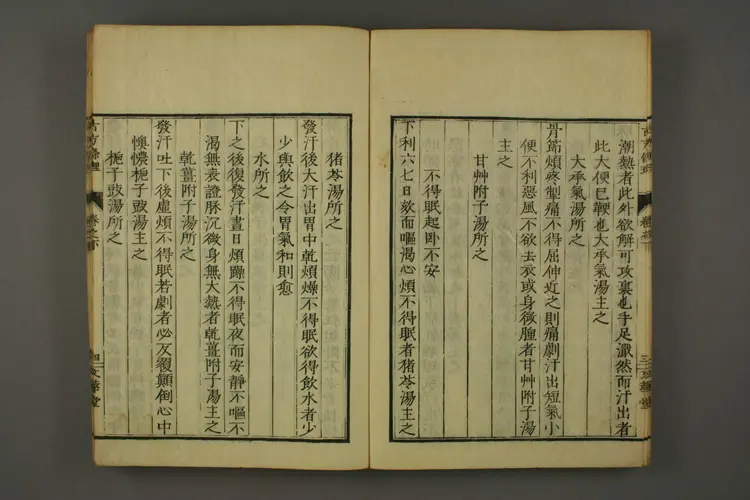 潮熱者此外欲解可攻裏也手足濈然而汗出者
此大便已鞕也大承氣湯主之
大承氣湯所之
骨節煩疼掣痛不得屈伸近之則痛劇汗出短氣小
便不利惡風不欲去衣或身微腫者甘艸附子湯
主之
甘艸附子湯所之
不得眠起臥不安
下利六七日欬而嘔渴心煩不得眠者猪苓湯主之
猪苓湯所之
發汗後大汗出胃中乾煩燥不得眠欲得飲水者少
少與飲之令胃氣和則愈
水所之
下之後復發汗晝日煩躁不得眠夜而安靜不嘔不
渴無表證脉沉微身無大熱者乾薑附子湯主之
乾薑附子湯所之
發汗吐下後虛煩不得眠若劇者必反覆顛倒心中
懊憹梔子豉湯主之
梔子豉湯所之